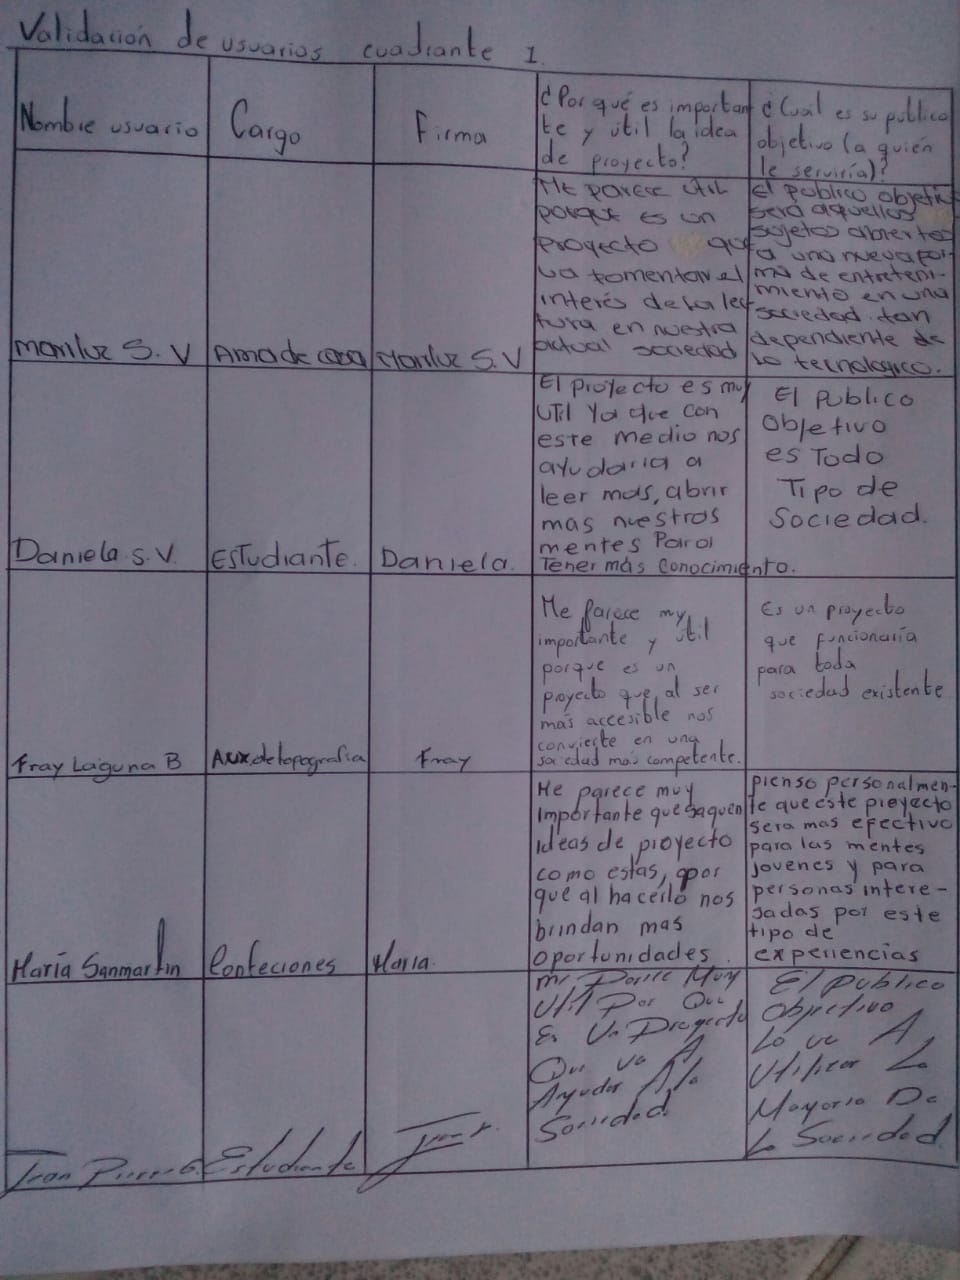 Validación de usuarios cuadrante 1.
Nombre usuario
Cargo
Firma
¿Por qué es importan
te y útil la idea
de proyecto?
¿Cuál es su publico
objetivo (a quién
le serviría)?
Mariluz S. V
Ama de casa
Mariluz S. V
Me parece útil
porque es un
proyecto que
va fomentar el
interés de la lec
tura en nuestra
actual sociedad
El publico objetivo
será aquellos
sujetos abiertos
a una nueva for-
ma de entreteni-
miento en una
sociedad tan
dependiente de
lo tecnologico.
Daniela S.V.
Estudiante.
Daniela.
El proyecto es muy
util ya que con
este medio nos
ayudaria a
leer mas, abrir
mas nuestras
mentes Para
Tener más conocimiento.
El publico
objetivo
es Todo
Tipo de
Sociedad.
Fray Laguna B
Aux. de topografia
Fray
Me parece my
importante y útil
porque es un
proyecto que, al ser
más accesible nos
convierte en una
sociedad más competente.
Es un proyecto
que funcionaría
para toda
sociedad existente
María Sanmartin
Confeciones
Maria.
Me parece muy
importante que saquen
ideas de proyecto
como estas, por
que al hacerlo nos
brindan mas
oportunidades.
pienso personalmen-
te que este proyecto
sera mas efectivo
para las mentes
jovenes y para
personas intere-
sadas por este
tipo de
experiencias
Estudiante
Muy
Util Por Que
Es Un Proyecto
Que va A
Ayudar A la
Sociedad
El publico
objetivo
Lo va A
Utilizar La
Mayoria De
La Sociedad